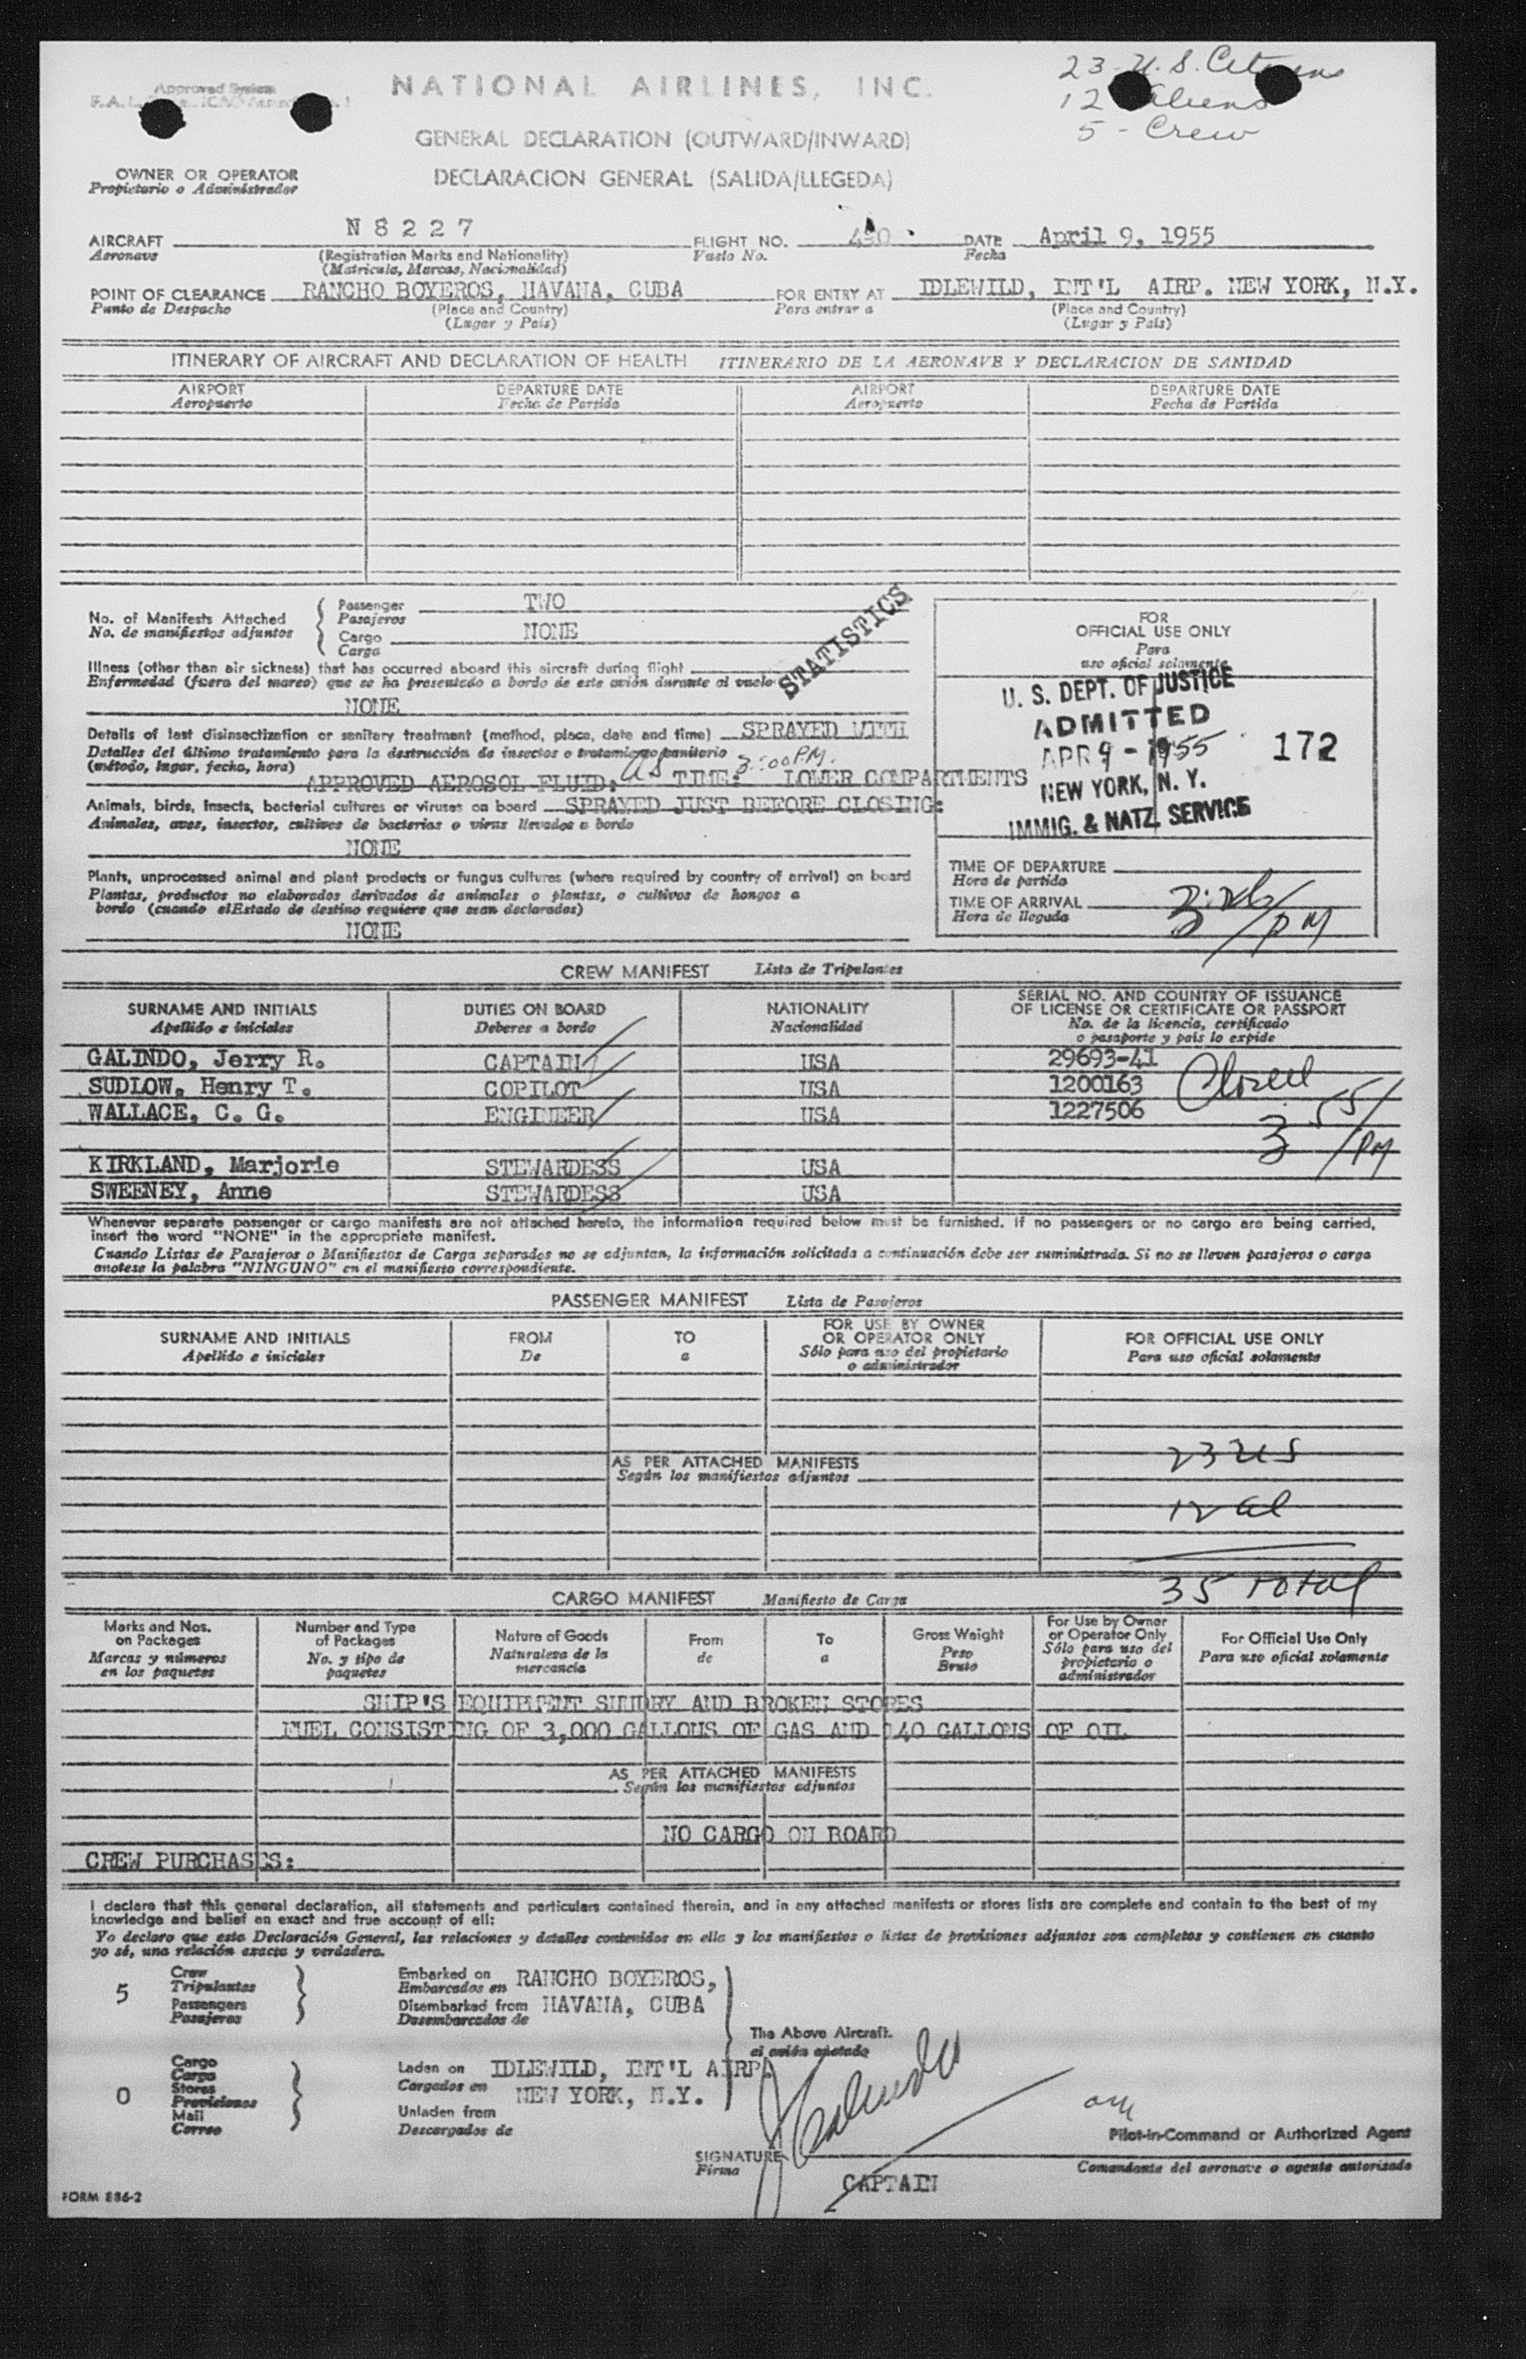 Approved System
NATIONAL AIRLINES, INC.
23 - U.S. Citizens
12 Aliens
5 - Crew
GENERAL DECLARATION (OUTWARD/INWARD)
DECLARACION GENERAL (SALIDA/LLEGEDA)
OWNER OR OPERATOR
Propietario o Administrador
AIRCRAFT N8227 FLIGHT NO. DATE April 9, 1955
Aeronave (Registration Marks and Nationality) Vuelo No. Fecha
(Matricula, Marcas, Nacionalidad)
POINT OF CLEARANCE RANCHO BOYEROS, HAVANA, CUBA FOR ENTRY AT IDLEWILD, INT'L AIRP. NEW YORK, N.Y.
Punto de Despacho (Place and Country) Para entrar a (Place and Country)
(Lugar y Pais) (Lugar y Pais)
ITINERARY OF AIRCRAFT AND DECLARATION OF HEALTH ITINERARIO DE LA AERONAVE Y DECLARACION DE SANIDAD
AIRPORT DEPARTURE DATE AIRPORT DEPARTURE DATE
Aeropuerto Fecha de Partida Aeropuerto Fecha de Partida
No. of Manifests Attached Passenger TWO
No. de manifiestos adjuntos Pasajeros
Cargo NONE
Carga
STATISTICS
Illness (other than air sickness) that has occurred aboard this aircraft during flight
Enfermedad (fuera del mareo) que se ha presentado a bordo de este avión durante el vuelo
NONE
Details of last disinsectization or sanitary treatment (method, place, date and time) SPRAYED WITH
Detalles del último tratamiento para la destrucción de insectos o tratamiento sanitario
(método, lugar, fecha, hora) 3:00 PM.
APPROVED AEROSOL FLUID: TIME: LOWER COMPARTMENTS
Animals, birds, insects, bacterial cultures or viruses on board SPRAYED JUST BEFORE CLOSING:
Animales, aves, insectos, cultivos de bacterias o virus llevados a bordo
NONE
Plants, unprocessed animal and plant products or fungus cultures (where required by country of arrival) on board
Plantas, productos no elaborados derivados de animales o plantas, o cultivos de hongos a
bordo (cuando elEstado de destino requiere que sean declarados)
NONE
FOR
OFFICIAL USE ONLY
Para
uso oficial solamente
U. S. DEPT. OF JUSTICE
ADMITTED
APR 9 - 1955 172
NEW YORK, N. Y.
IMMIG. & NATZ. SERVICE
TIME OF DEPARTURE
Hora de partida
TIME OF ARRIVAL
Hora de llegada PM
CREW MANIFEST Lista de Tripulantes
SURNAME AND INITIALS DUTIES ON BOARD NATIONALITY SERIAL NO. AND COUNTRY OF ISSUANCE
OF LICENSE OR CERTIFICATE OR PASSPORT
Apellido e iniciales Deberes a bordo Nacionalidad No. de la licencia, certificado
o pasaporte y pais lo expide
GALINDO, Jerry R. CAPTAIN USA 29693-41
SUDLOW, Henry T. COPILOT USA 1200163
WALLACE, C. G. ENGINEER USA 1227506
Closed
3 55 PM
KIRKLAND, Marjorie STEWARDESS USA
SWEENEY, Anne STEWARDESS USA
Whenever separate passenger or cargo manifests are not attached hereto, the information required below must be furnished. If no passengers or no cargo are being carried,
insert the word "NONE" in the appropriate manifest.
Cuando Listas de Pasajeros o Manifiestos de Carga separados no se adjuntan, la información solicitada a continuación debe ser suministrada. Si no se lleven pasajeros o carga
anotese la palabra "NINGUNO" en el manifiesto correspondiente.
PASSENGER MANIFEST Lista de Pasajeros
SURNAME AND INITIALS FROM TO FOR USE BY OWNER
OR OPERATOR ONLY FOR OFFICIAL USE ONLY
Apellido e iniciales De a Sólo para uso del propietario
o administrador Para uso oficial solamente
23 US
AS PER ATTACHED MANIFESTS
Según los manifiestos adjuntos
12 al
35 Total
CARGO MANIFEST Manifiesto de Carga
Marks and Nos.
on Packages
Marcas y números
en los paquetes
Number and Type
of Packages
No. y tipo de
paquetes
Nature of Goods
Naturaleza de la
mercancia
From
de
To
a
Gross Weight
Peso
Bruto
For Use by Owner
or Operator Only
Sólo para uso del
propietario o
administrador
For Official Use Only
Para uso oficial solamente
SHIP'S EQUIPMENT SUNDRY AND BROKEN STORES
FUEL CONSISTING OF 3,000 GALLONS OF GAS AND 140 GALLONS OF OIL
AS PER ATTACHED MANIFESTS
Según los manifiestos adjuntos
NO CARGO ON BOARD
CREW PURCHASES:
I declare that this general declaration, all statements and particulars contained therein, and in any attached manifests or stores lists are complete and contain to the best of my
knowledge and belief an exact and true account of all:
Yo declaro que esta Declaración General, las relaciones y detalles contenidos en ella y los manifiestos o listas de provisiones adjuntos son completos y contienen en cuanto
yo sé, una relación exacta y verdadera.
5 Crew
Tripulantes
Passengers
Pasajeros
Embarked on RANCHO BOYEROS,
Embarcados en
Disembarked from HAVANA, CUBA
Desembarcados de
The Above Aircraft.
el avión anotado
0 Cargo
Carga
Stores
Provisiones
Mail
Correo
Laden on IDLEWILD, INT'L AIRP.
Cargados en NEW YORK, N.Y.
Unladen from
Descargados de
Pilot-in-Command or Authorized Agent
SIGNATURE J Galindo
Firma Comandante del aeronave o agente autorizado
CAPTAIN
FORM 886-2